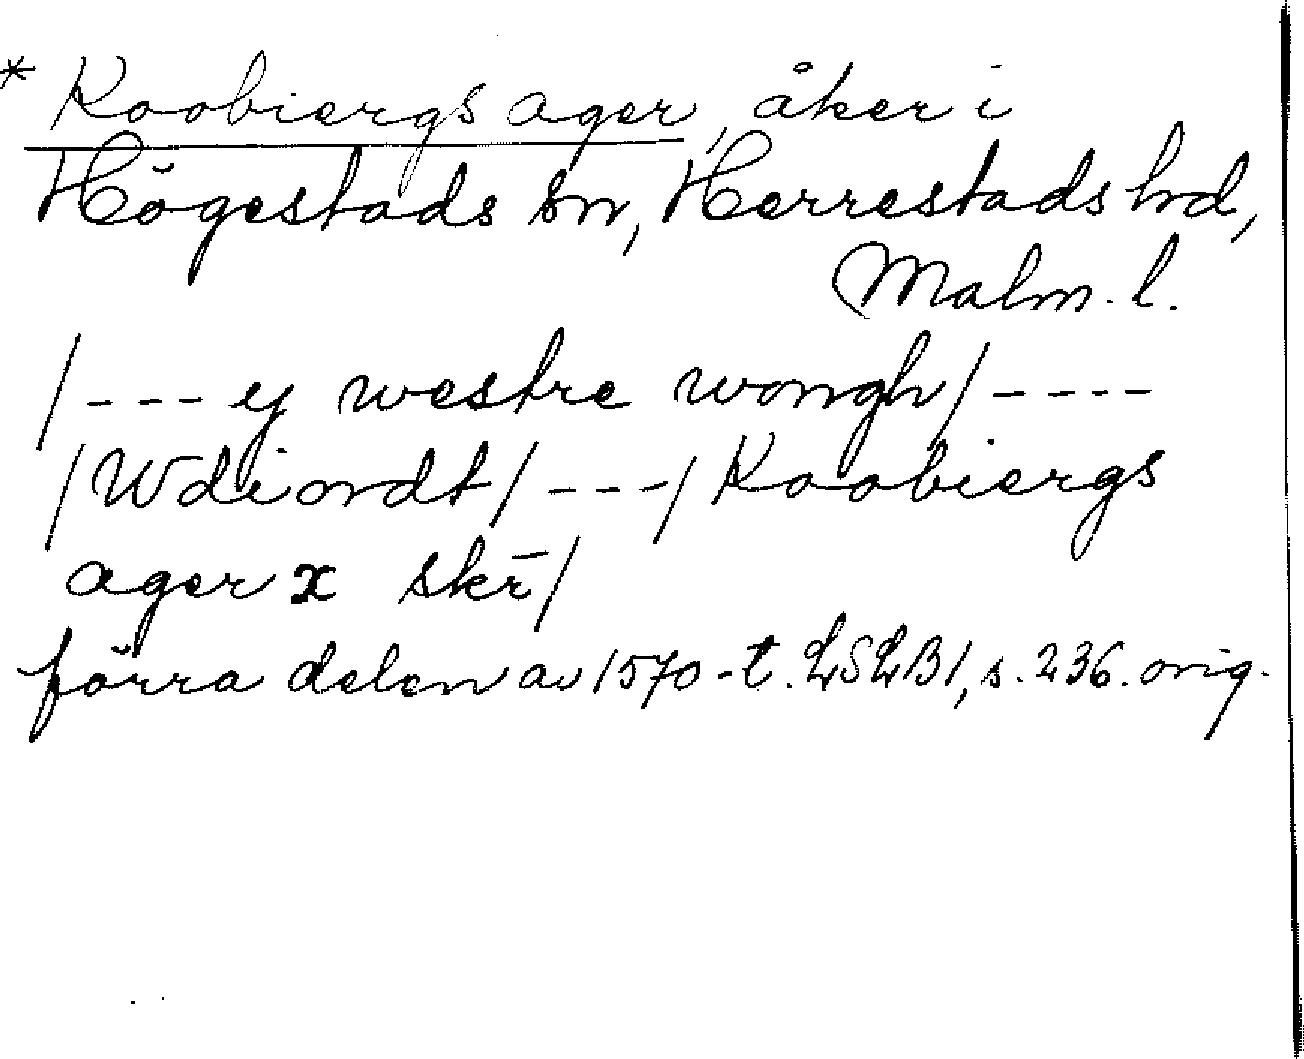 * Koobiergs ager, åker i
Högestads sn, Herrestads hd,
Malm. l.
/--- ej westre wongh/----
/Wdiordt/---/Koobiergs
ager x skr̄/
förra delen av 1570-t. LSLB1, s. 236. orig.